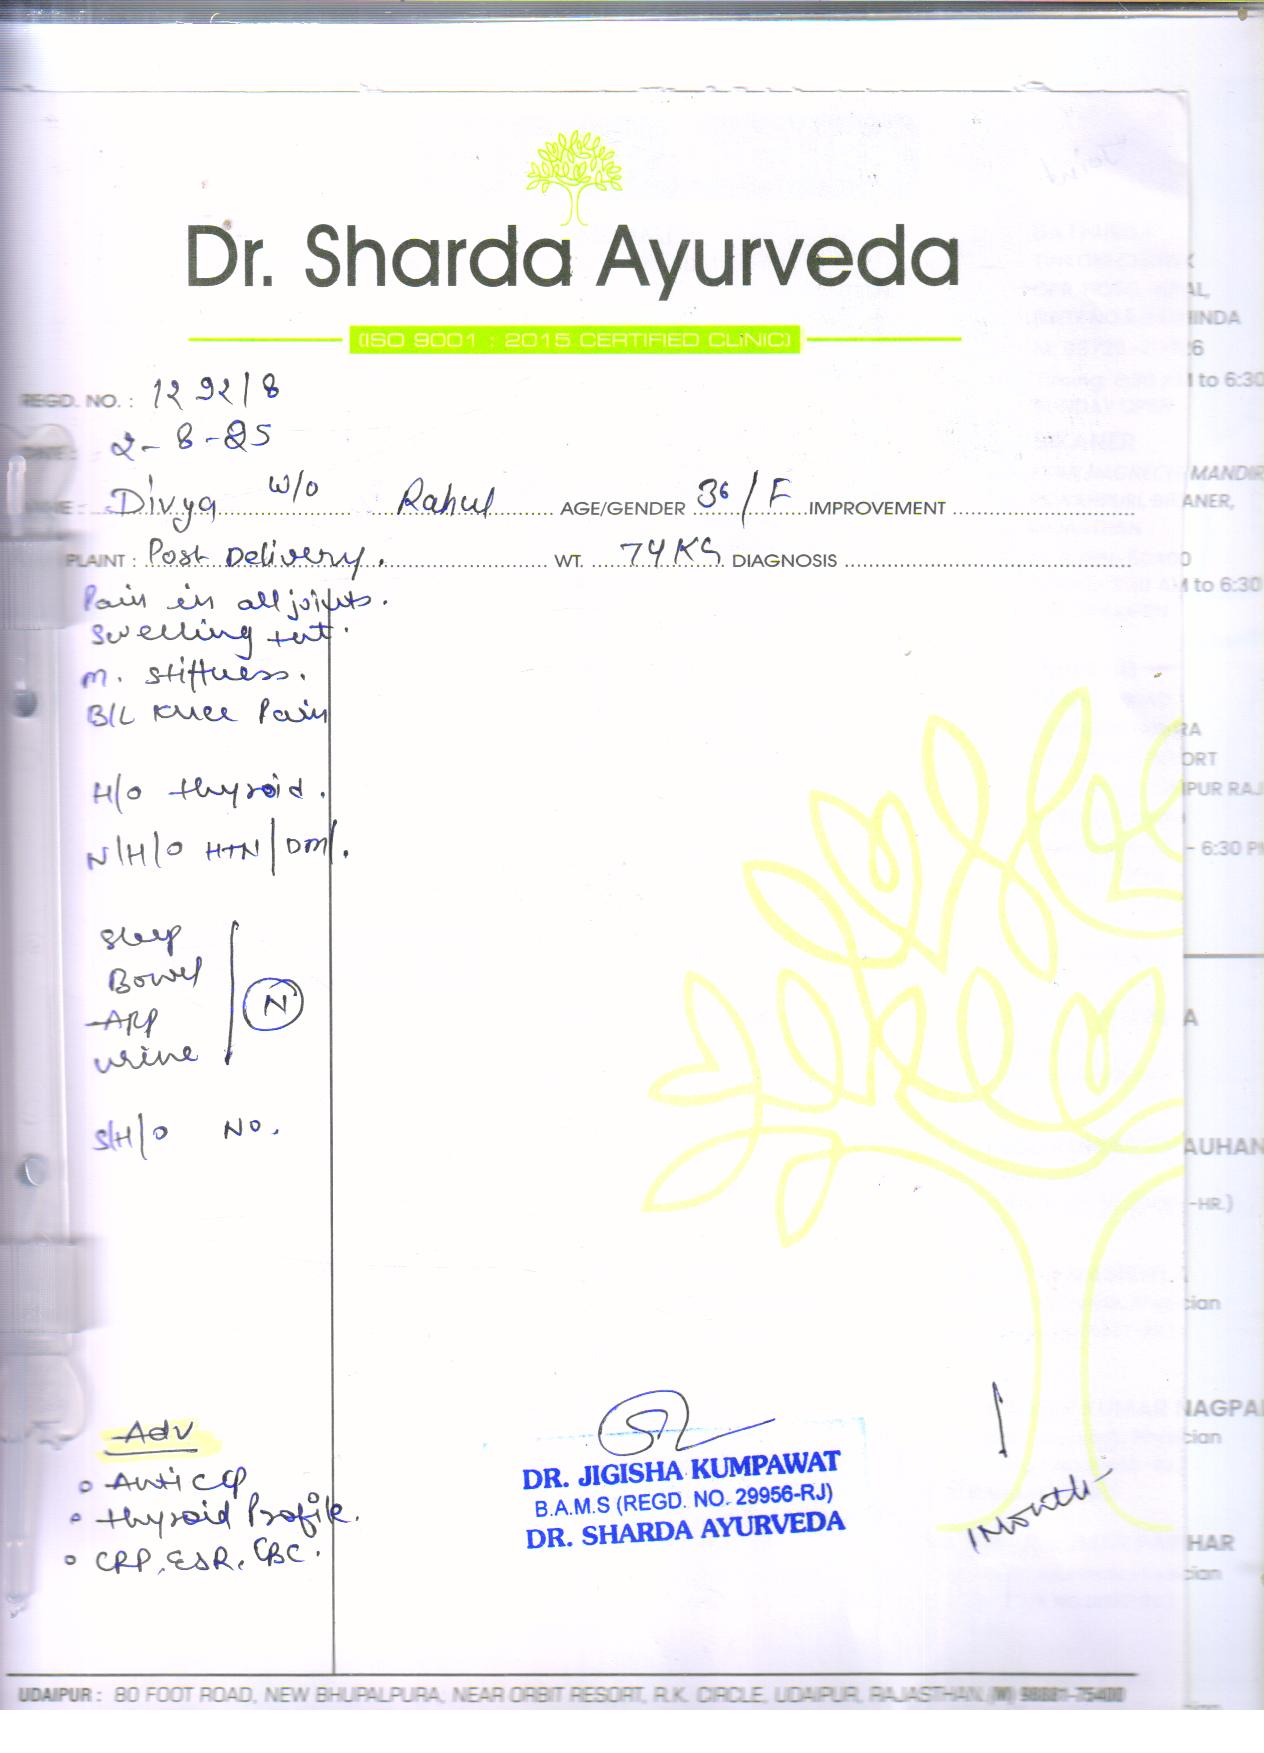 Dr. Sharda Ayurveda
(ISO 9001 : 2015 CERTIFIED CLINIC)
REGD. NO. : 1292/8
DATE : 2-8-25
NAME : Divya w/o Rahul AGE/GENDER 36/F IMPROVEMENT
PLAINT : Post Delivery. WT. 74KG DIAGNOSIS
Pain in all joints.
Swelling +nt.
M. Stiffness.
B/L Knee Pain
H/o thyroid.
N/H/o HTN/DM.
Sleep
Bowel
APP
urine
N
S/H/o No.
Adv
Anti CCP
Thyroid Profile.
CRP, ESR, CBC.
DR. JIGISHA KUMPAWAT
B.A.M.S (REGD. NO. 29956-RJ)
DR. SHARDA AYURVEDA
1 Month
UDAIPUR : 80 FOOT ROAD, NEW BHUPALPURA, NEAR ORBIT RESORT, R.K. CIRCLE, UDAIPUR, RAJASTHAN (M) 98881-75400
INDA
to 6:30
MANDIR
ANER,
to 6:30
ORT
IPUR RAJ
- 6:30 PM
AUHAN
-HR.)
cian
NAGPAL
cian
HAR
cian